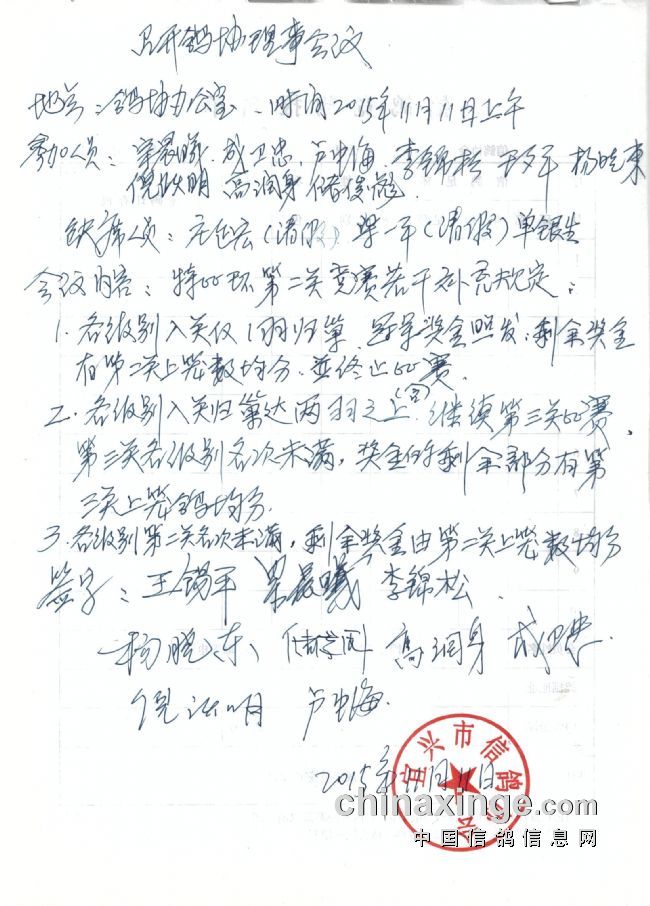 召开鸽协理事会议
地点：鸽协办公室、时间2015年11月11日上午
参加人员：宗晨曦、成卫忠、芦中海、李锦松 王锡平 杨晓东
倪洪明 高润身 储俊彪
缺席人员：(请假) 一平(请假)单银生
会议内容：特比环第二关竞赛若干补充规定：
1. 各级别入关仅1羽归巢 冠军奖金照发，剩余奖金
有第二关上笼数均分、並终止比赛.
2. 各级别入关归巢达两羽之上(含)继续第三关比赛、
第三关各级别名次未满，奖金的剩余部分有第
三关上笼鸽均分.
3. 各级别第二关名次未满，剩余奖金由第二关上笼数均分
签字：王锡平 宗晨曦 李锦松
杨晓东、高润身 成卫忠
倪洪明 芦中海
2015年11月11日
宜兴市信鸽协会
chinaxinge.com
中国信鸽信息网